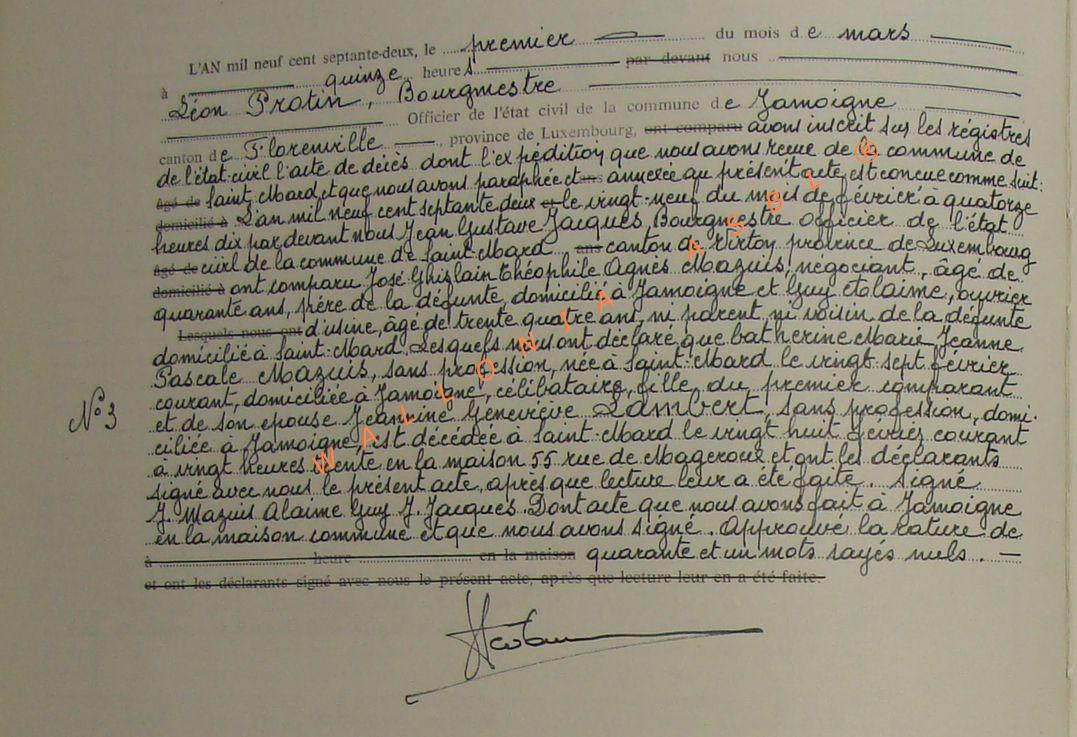 L'AN mil neuf cent septante-deux, le premier du mois de mars
à quinze heures par devant nous
Léon Protin, Bourgmestre
Officier de l'état civil de la commune de Jamoigne
canton de Florenville, province de Luxembourg, ont comparu avons inscrit sur les régistres
de l'état-civil l'acte de décès dont l'expédition que nous avons reçue de la commune de
âgé de Saint-Mard, et que nous avons paraphée et ans annexée au présent acte, est conçue comme suit:
domicilié à L'an mil neuf cent septante deux et le vingt-neuf du mois de février à quatorze
heures dix par devant nous Jean Gustave Jacques, Bourgmestre officier de l'état
âgé de civil de la commune de Saint-Mard ans canton de Virton province de Luxembourg
domicilié à ont comparu José Ghislain Théophile Agnès Mazuis, négociant, âgé de
quarante ans, père de la défunte, domicilié à Jamoigne et Guy Alaime, ouvrier
Lesquels nous ont d'usine, âgé de trente quatre ans, ni parent ni voisin de la défunte
domicilié à Saint-Mard, Lesquels nous ont déclaré que Catherine Marie Jeanne
Pascale Mazuis, sans profession, née à Saint-Mard le vingt-sept février
courant, domiciliée à Jamoigne, célibataire, fille du premier comparant
N° 3
et de son epouse Jeannine Geneviève Lambert, sans profession, domi-
ciliée à Jamoigne, est décédée à Saint-Mard le vingt huit février courant
à vingt heures trente en la maison 55 rue de Mageroux et ont les déclarants
signé avec nous le présent acte, après que lecture leur a été faite. Signé
J. Mazuis Alaime Guy J. Jacques. Dont acte que nous avons fait à Jamoigne
en la maison commune et que nous avons signé. Approuvé la rature de
à heure en la maison quarante et un mots rayés nuls. —
et ont les déclarants signé avec nous le présent acte, après que lecture leur en a été faite.
WALLONIA ASBL ©